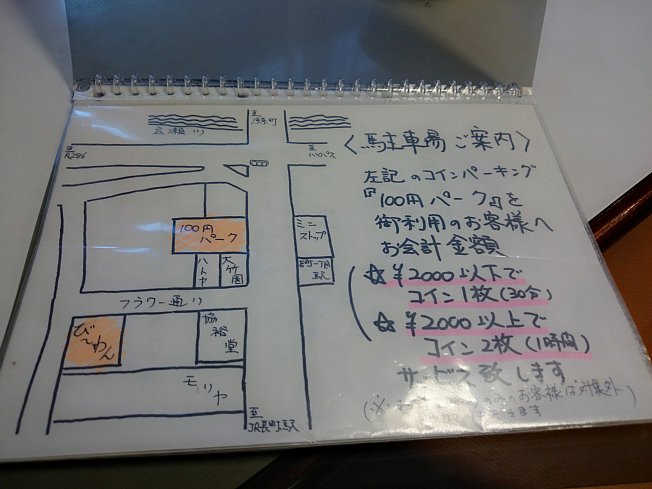 至
河原町
広瀬川
至
R286
至
バイパス
100円
パーク
ミニ
ストップ
ハトヤ
大竹園
長町一丁目
駅
フラワー通り
び〜わん
協裕堂
モリヤ
至
JR長町駅
〈駐車場ご案内〉
左記のコインパーキング
『100円パーク』を
御利用のお客様へ
お会計金額
☆¥2000以下で
コイン1枚(30分)
☆¥2000以上で
コイン2枚(1時間)
サービス致します
(※
のみのお客様は対象外
きます